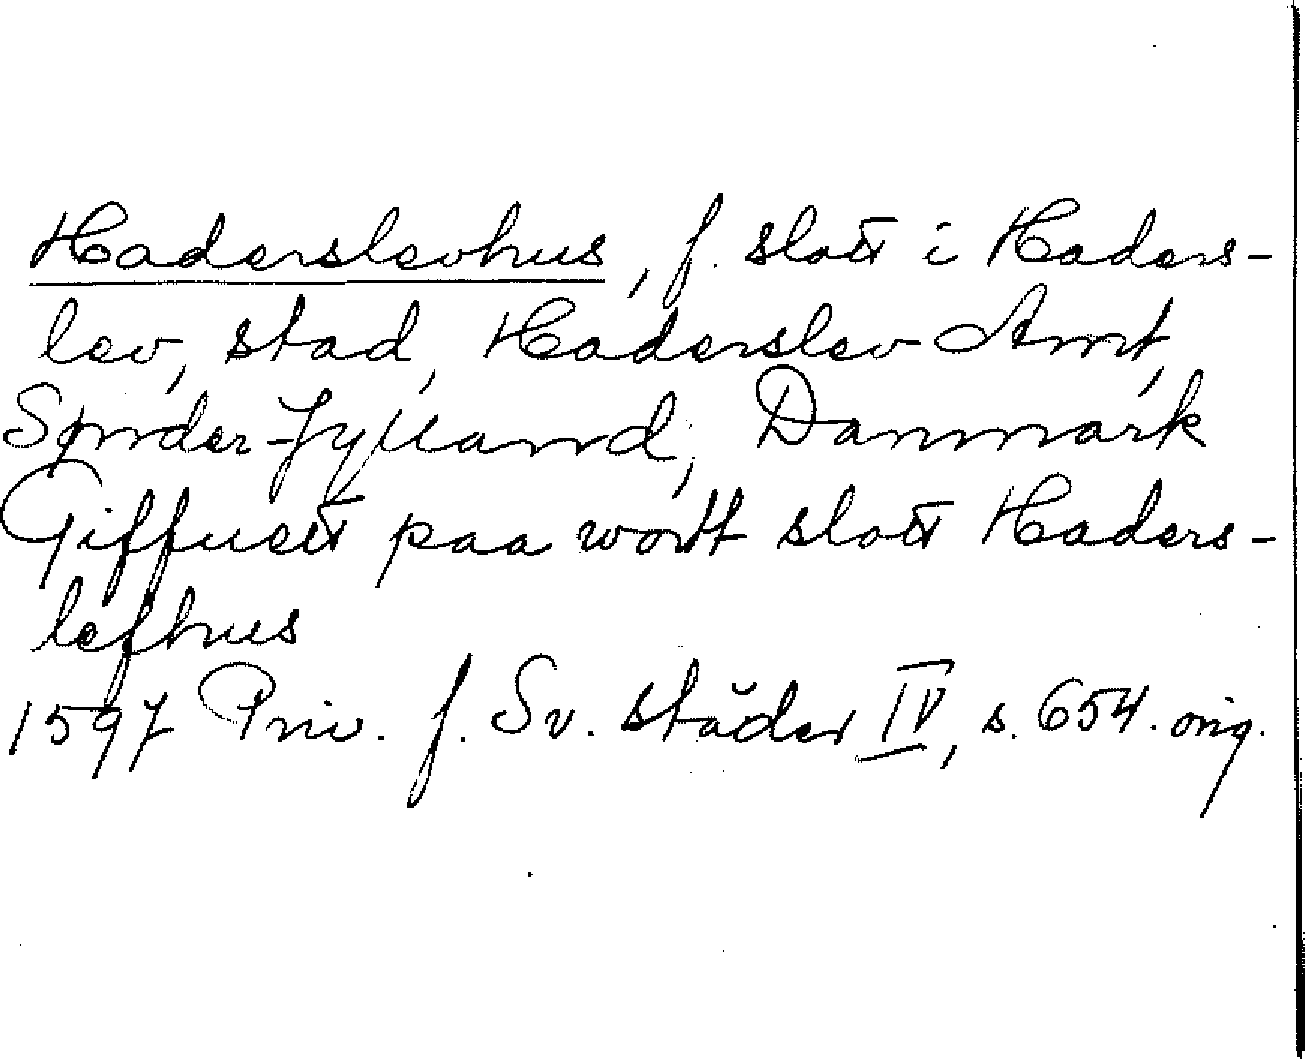 Haderslevhus, f. slott i Haders-
lev, stad, Haderslev Amt,
Sønder-Jylland, Danmark
Giffuett paa wortt slott Haders-
lefhus
1597 Priv. f. Sv. städer IV, s. 654. orig.